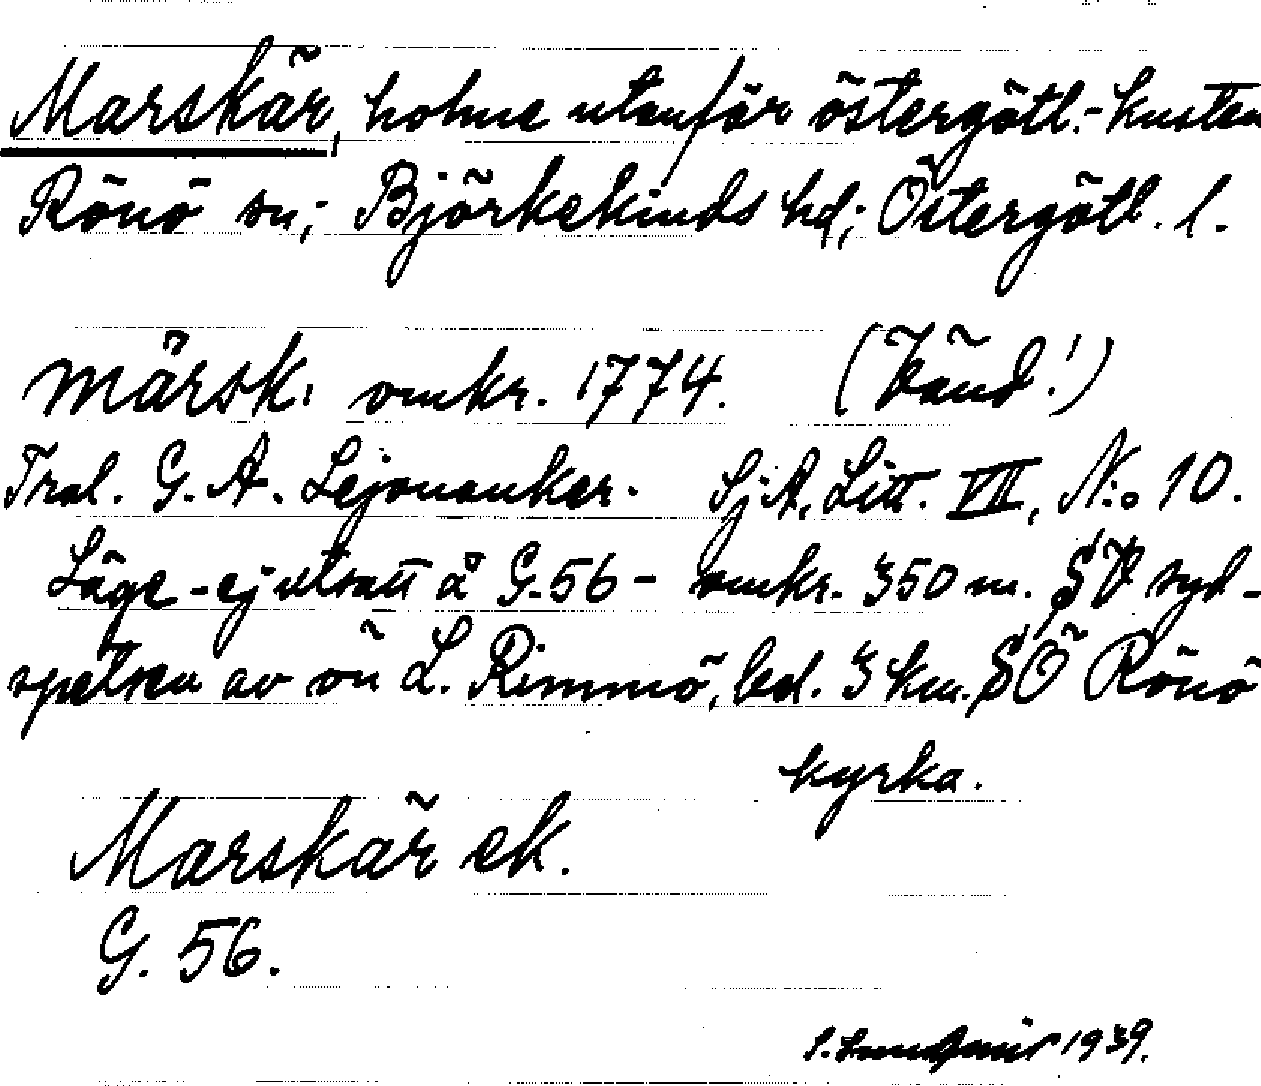 Marskär, holme utanför östergötl.-kusten
Rönö sn; Björkekinds hd; Östergötl. l.
märsk. omkr. 1774. (Vänd!)
Tral. G. A. Lejonanker. Sj.A. Litt. VII, N:o 10.
Läge - ej utsatt å G. 56 - omkr. 350 m. SV syd-
spetsen av ön L. Rimmö, bel. 3 km. SÖ Rönö
kyrka.
Marskär ek.
G. 56.
1939.